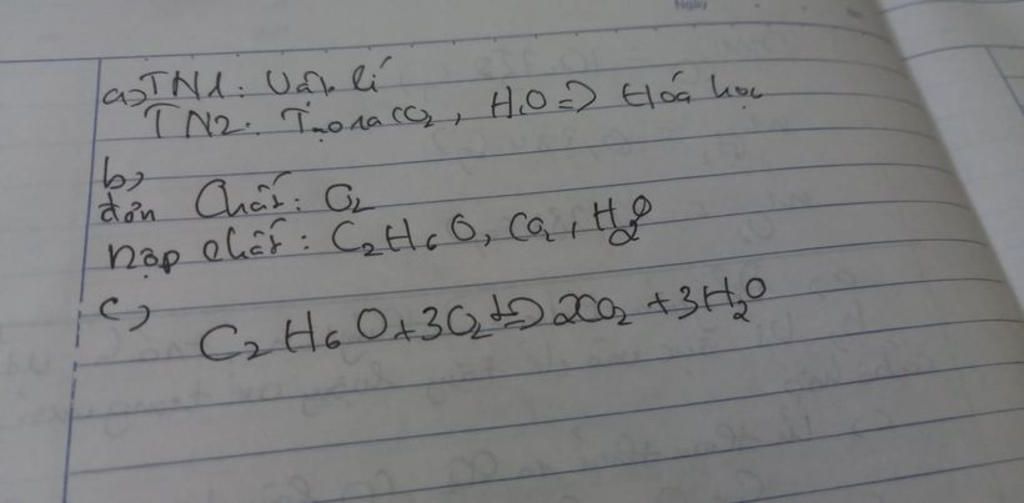 a) TN1: Vật lí
TN2: Tạo ra CO2, H2O => Hoá học
b)
đơn chất: O2
hợp chất: C2H6O, CO2, H2O
c)
C2H6O + 3O2 => 2CO2 + 3H2O